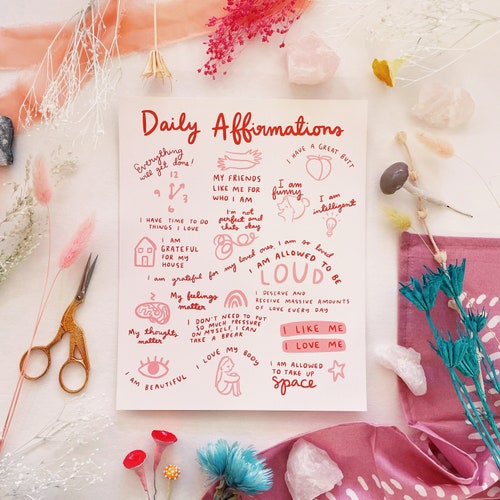 Daily Affirmations
Everything
will get done!
12
3
6
MY FRIENDS
LIKE ME FOR
WHO I AM
I HAVE A GREAT BUTT
I am
funny
I am
intelligent
I HAVE TIME TO DO
THINGS I LOVE
I'm not
perfect and
thats okay
I AM
GRATEFUL
FOR MY
HOUSE
I am grateful for my loved ones, I am so loved
I AM ALLOWED TO BE
LOUD
My feelings
matter
I DESERVE AND
RECEIVE MASSIVE AMOUNTS
OF LOVE EVERY DAY
My thoughts
matter
I DON'T NEED TO PUT
SO MUCH PRESSURE
ON MYSELF, I CAN
TAKE A BREAK
I LIKE ME
I LOVE ME
I AM BEAUTIFUL
I LOVE MY BODY
I AM ALLOWED
TO TAKE UP
space